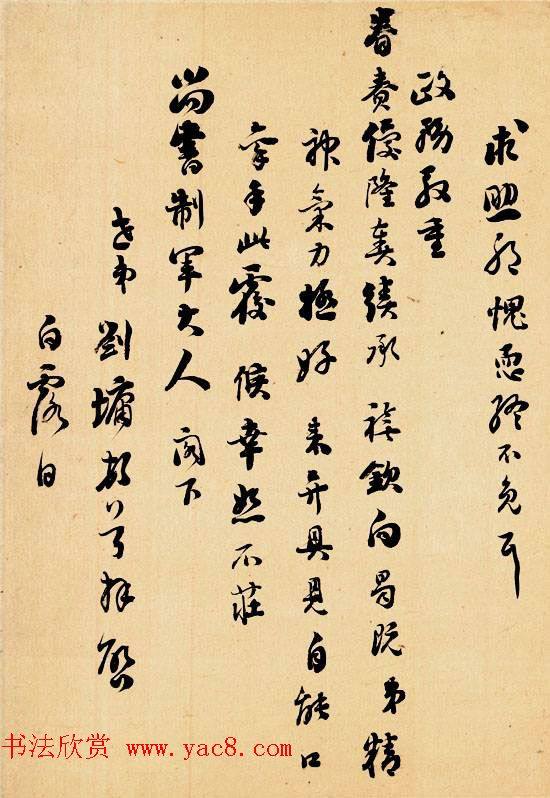 求愧恧終不免耳
政務重
眷賚優隆奏績承 禧欽向曷既弟精
神氣力極好 来弁具見自能口
手此覆 候幸恕不莊
尚書制軍大人 閣下
世弟 劉墉頓首拜啓
白露日
书法欣赏 www.yac8.com